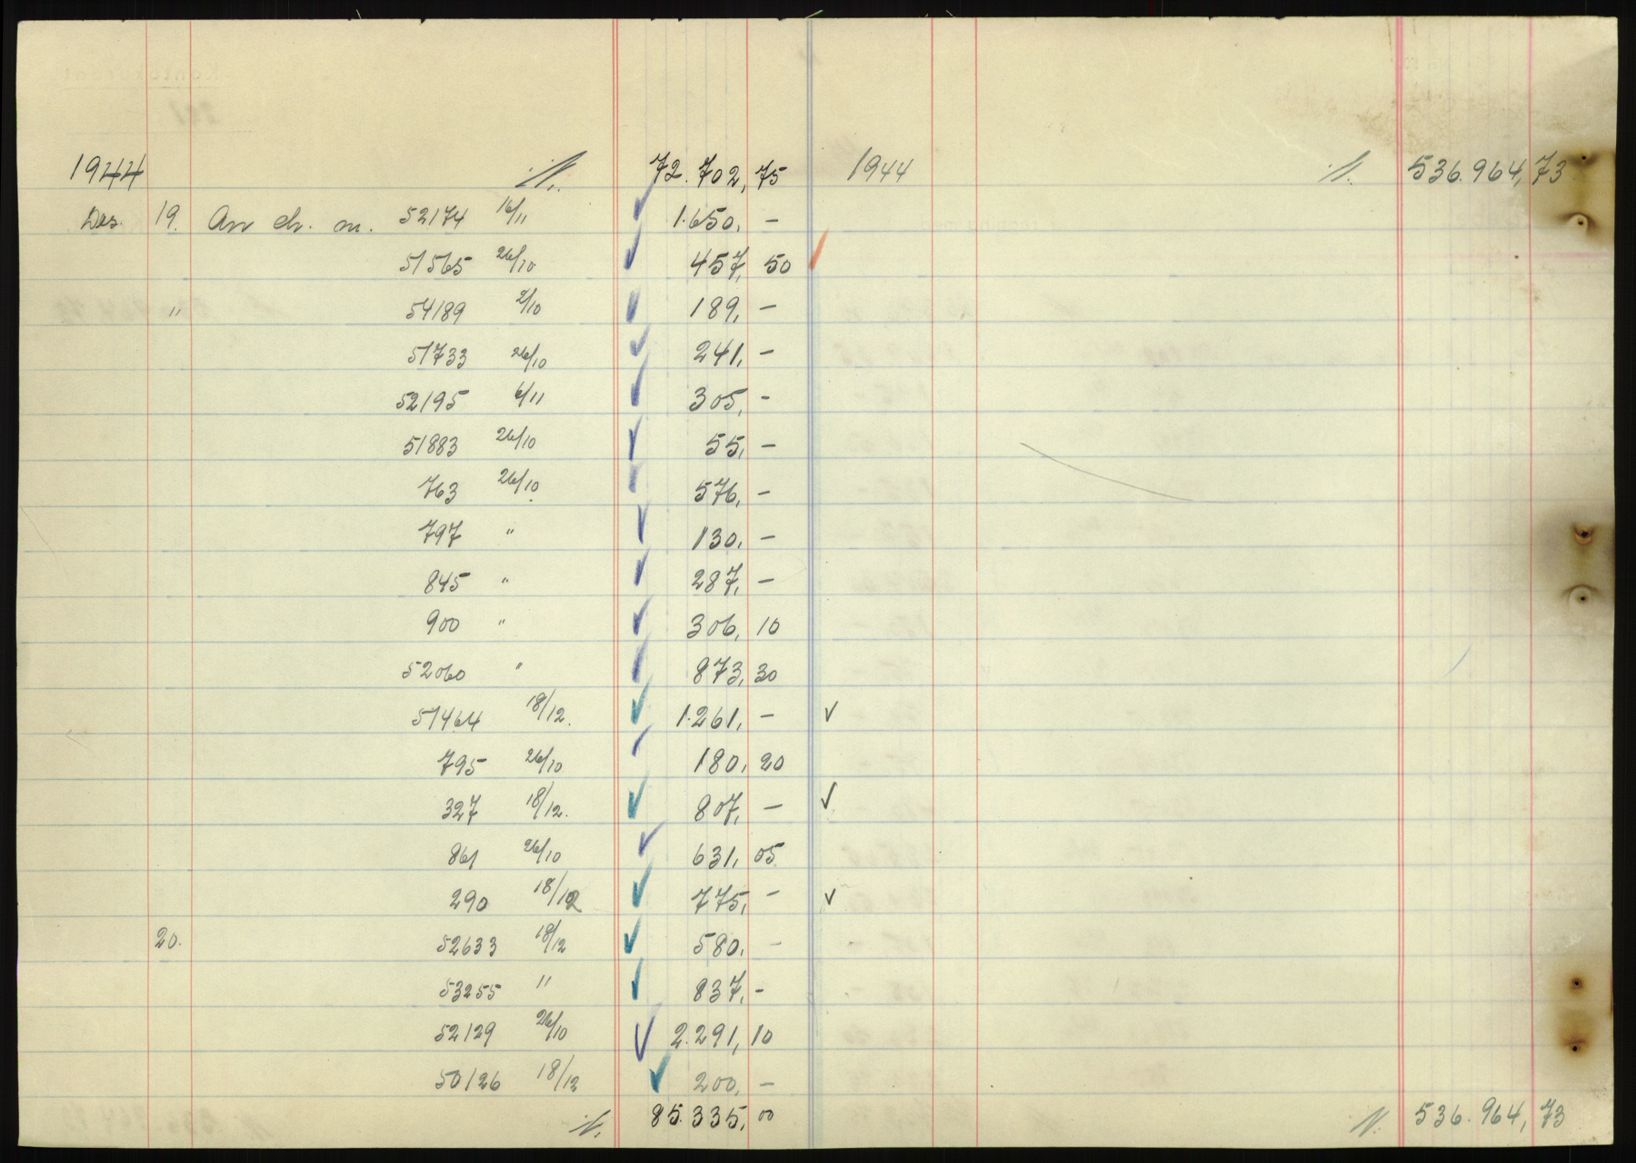 1944 N. 72.702,75 1944 N. 536.964,73
Des. 19. An ch. on. 52174 16/11 1.650,-
51565 26/10 457,50
" 54189 2/10 189,-
51733 26/10 241,-
52195 6/11 305,-
51883 26/10 55,-
763 26/10 576,-
797 " 130,-
845 " 287,-
900 " 306,10
52060 " 873,30
51464 18/12. 1.261,- ✓
795 26/10 180,20
327 18/12. 807,- ✓
861 26/10 631,05
290 18/12 775,- ✓
20. 52633 18/12 580,-
53255 " 837,-
52129 26/10 2.291,10
50126 18/12 200,-
N. 85.335,00 N. 536.964,73